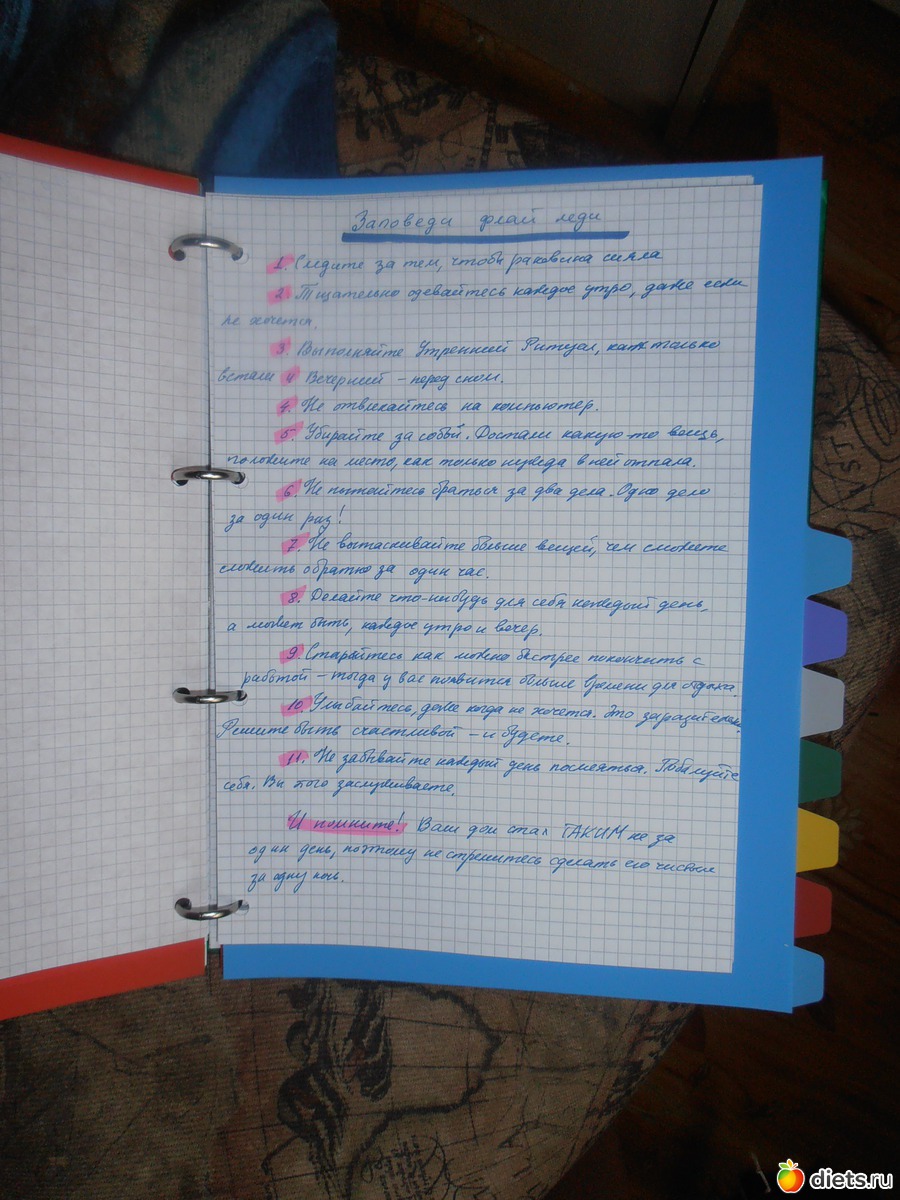 Заповеди флай леди
1. Следите за тем, чтобы раковина сияла
2. Тщательно одевайтесь каждое утро, даже если
не хочется.
3. Выполняйте Утренний Ритуал, как только
встали и Вечерний – перед сном.
4. Не отвлекайтесь на компьютер.
5. Убирайте за собой. Достали какую-то вещь,
положите на место, как только нужда в ней отпала.
6. Не пытайтесь браться за два дела. Одно дело
за один раз!
7. Не вытаскивайте больше вещей, чем сможете
сложить обратно за один час.
8. Делайте что-нибудь для себя каждый день,
а может быть, каждое утро и вечер.
9. Старайтесь как можно быстрее покончить с
работой – тогда у вас появится больше времени для отдыха.
10. Улыбайтесь, даже когда не хочется. Это заразительно.
Решите быть счастливой – и будете.
11. Не забывайте каждый день посмеяться. Побалуйте
себя. Вы того заслуживаете.
И помните! Ваш дом стал ТАКИМ не за
один день, поэтому не стремитесь сделать его чистым
за одну ночь.
diets.ru